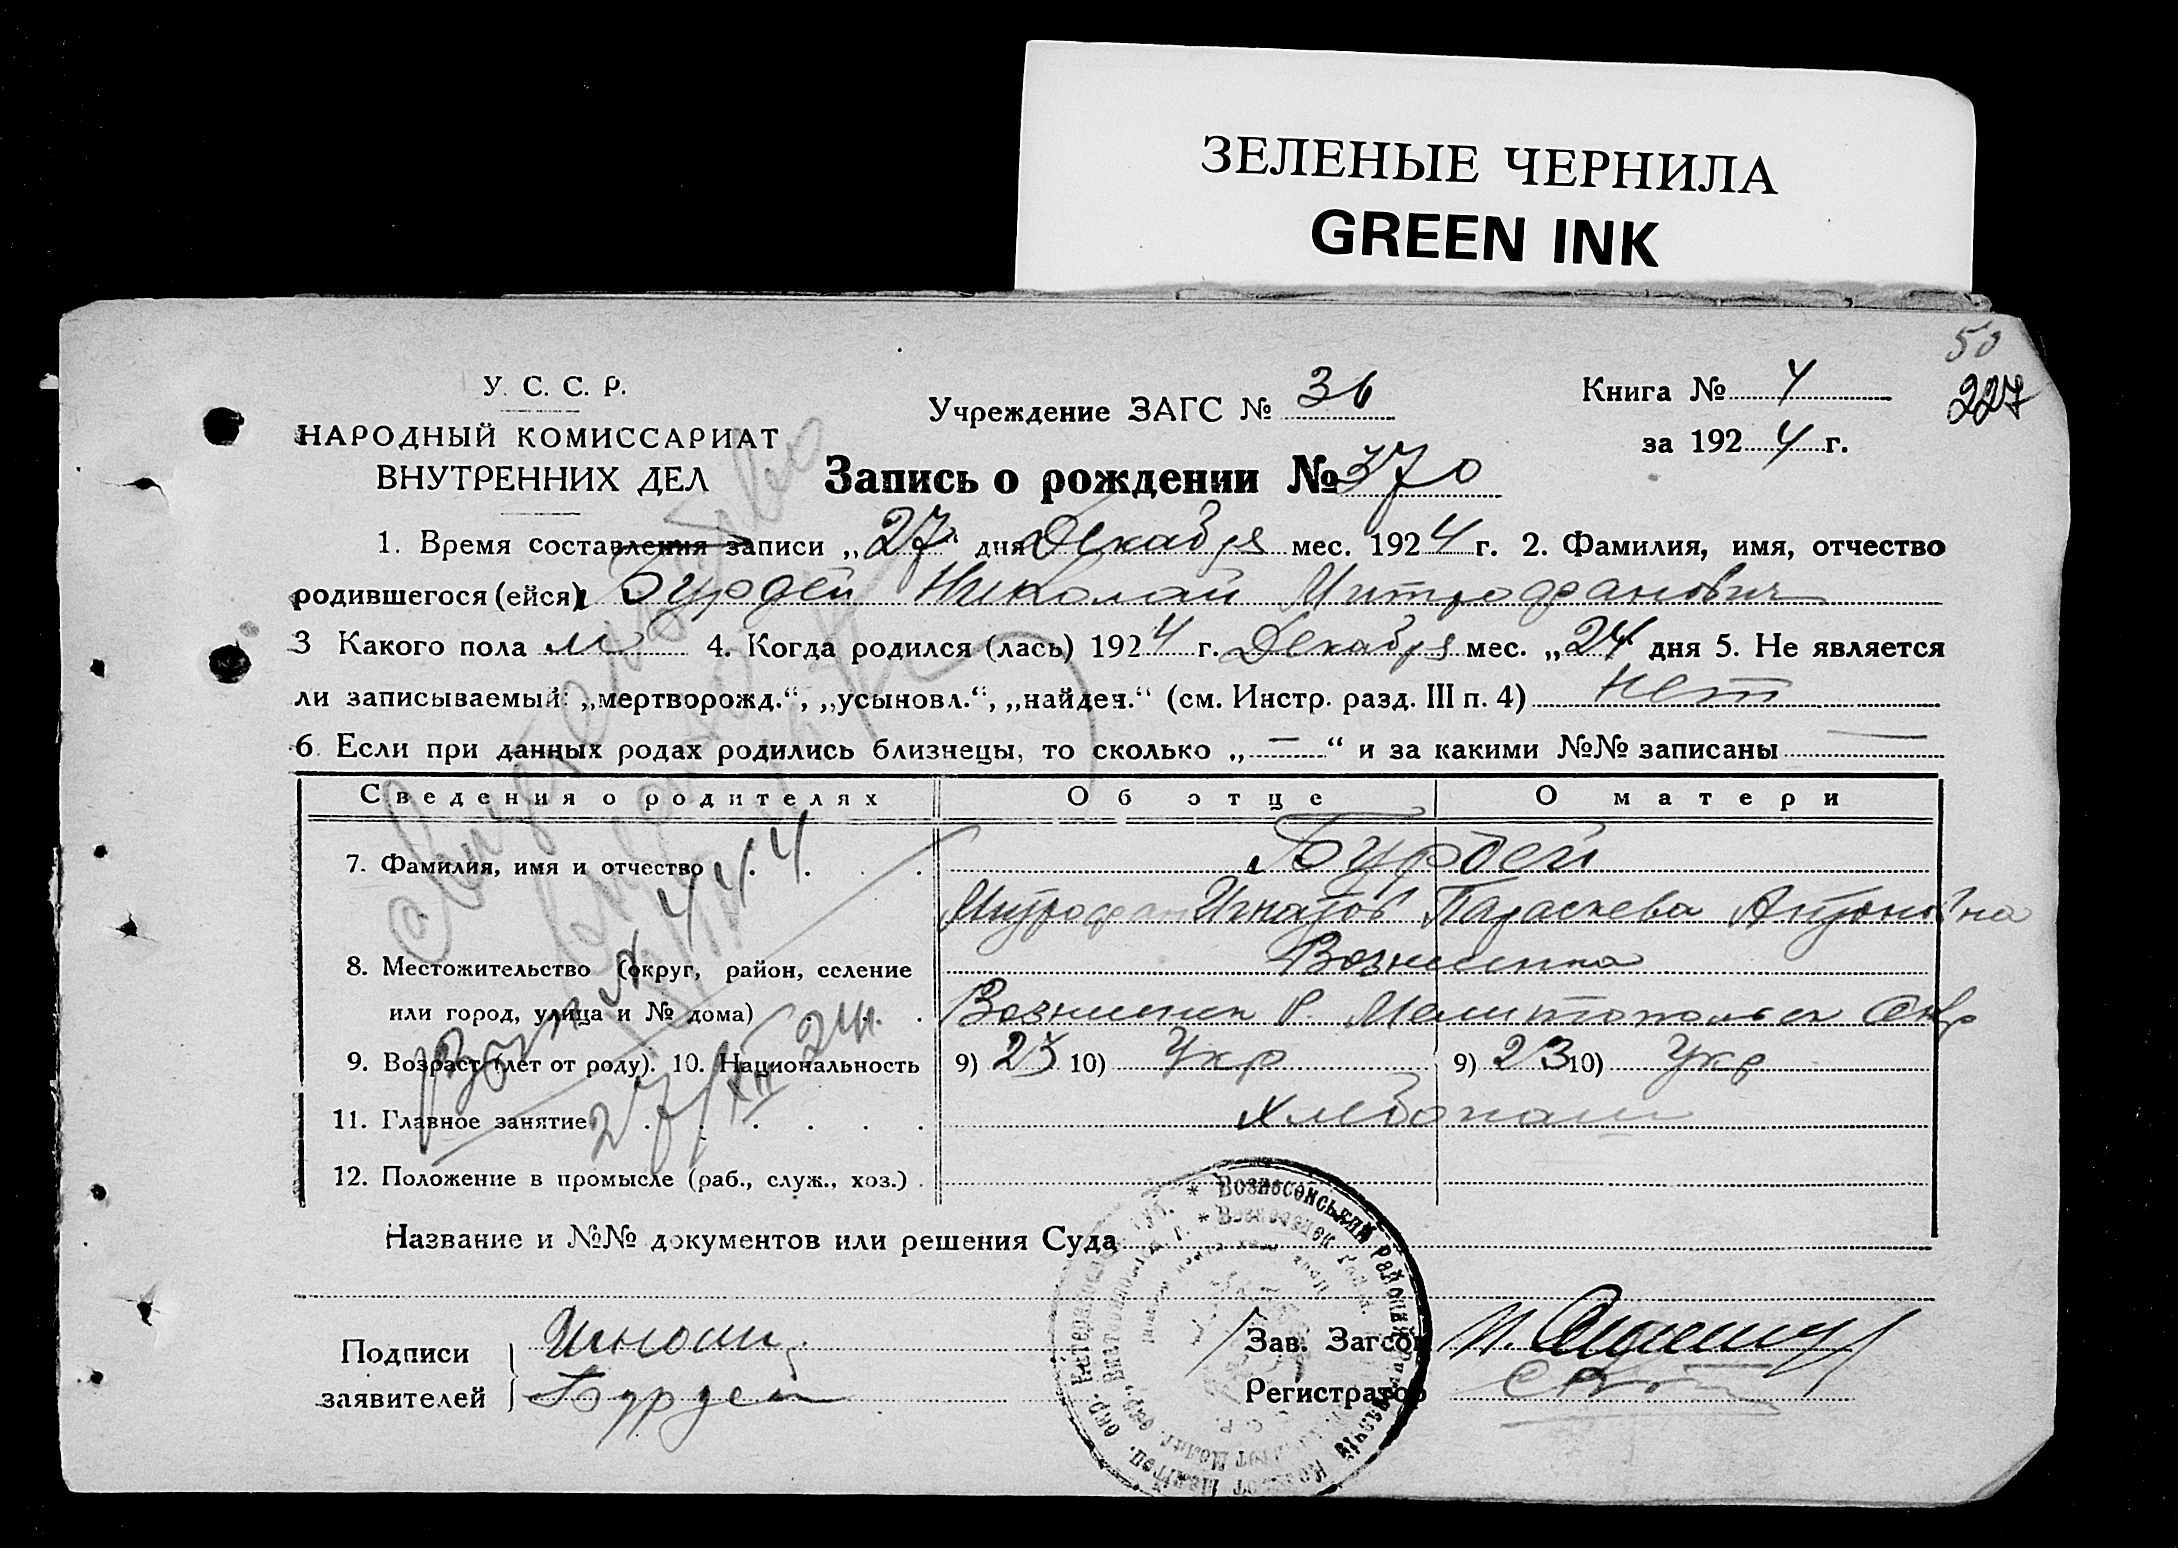 ЗЕЛЕНЫЕ ЧЕРНИЛА
GREEN INK
50
227
У. С. С. Р.
НАРОДНЫЙ КОМИССАРИАТ
ВНУТРЕННИХ ДЕЛ
Учреждение ЗАГС № 36
Книга № 4
за 1924 г.
Запись о рождении № 370
1. Время составления записи „27“ дня Декабря мес. 1924 г. 2. Фамилия, имя, отчество
родившегося (ейся) Бурдей Николай Митрофанович
3 Какого пола м 4. Когда родился (лась) 1924 г. Декабря мес. „24“ дня 5. Не является
ли записываемый: „мертворожд.“, „усыновл.“, „найден.“ (см. Инстр. разд. III п. 4) нет
6. Если при данных родах родились близнецы, то сколько „—“ и за какими №№ записаны —
Сведения о родителях Об отце О матери
7. Фамилия, имя и отчество Бурдей
Митрофан Игнатов Параскева Антоновна
8. Местожительство (округ, район, селение Вознесенка
или город, улица и № дома) Вознесенск Р. Мелитопольск Окр
9. Возраст (лет от роду). 10. Национальность 9) 23 10) Укр 9) 23 10) Укр
11. Главное занятие хлебопаш
12. Положение в промысле (раб., служ., хоз.)
27/XII 24г.
Название и №№ документов или решения Суда
Подписи
заявителей
Бурдей
Зав. Загсом
Регистратор
Вознесенський Район